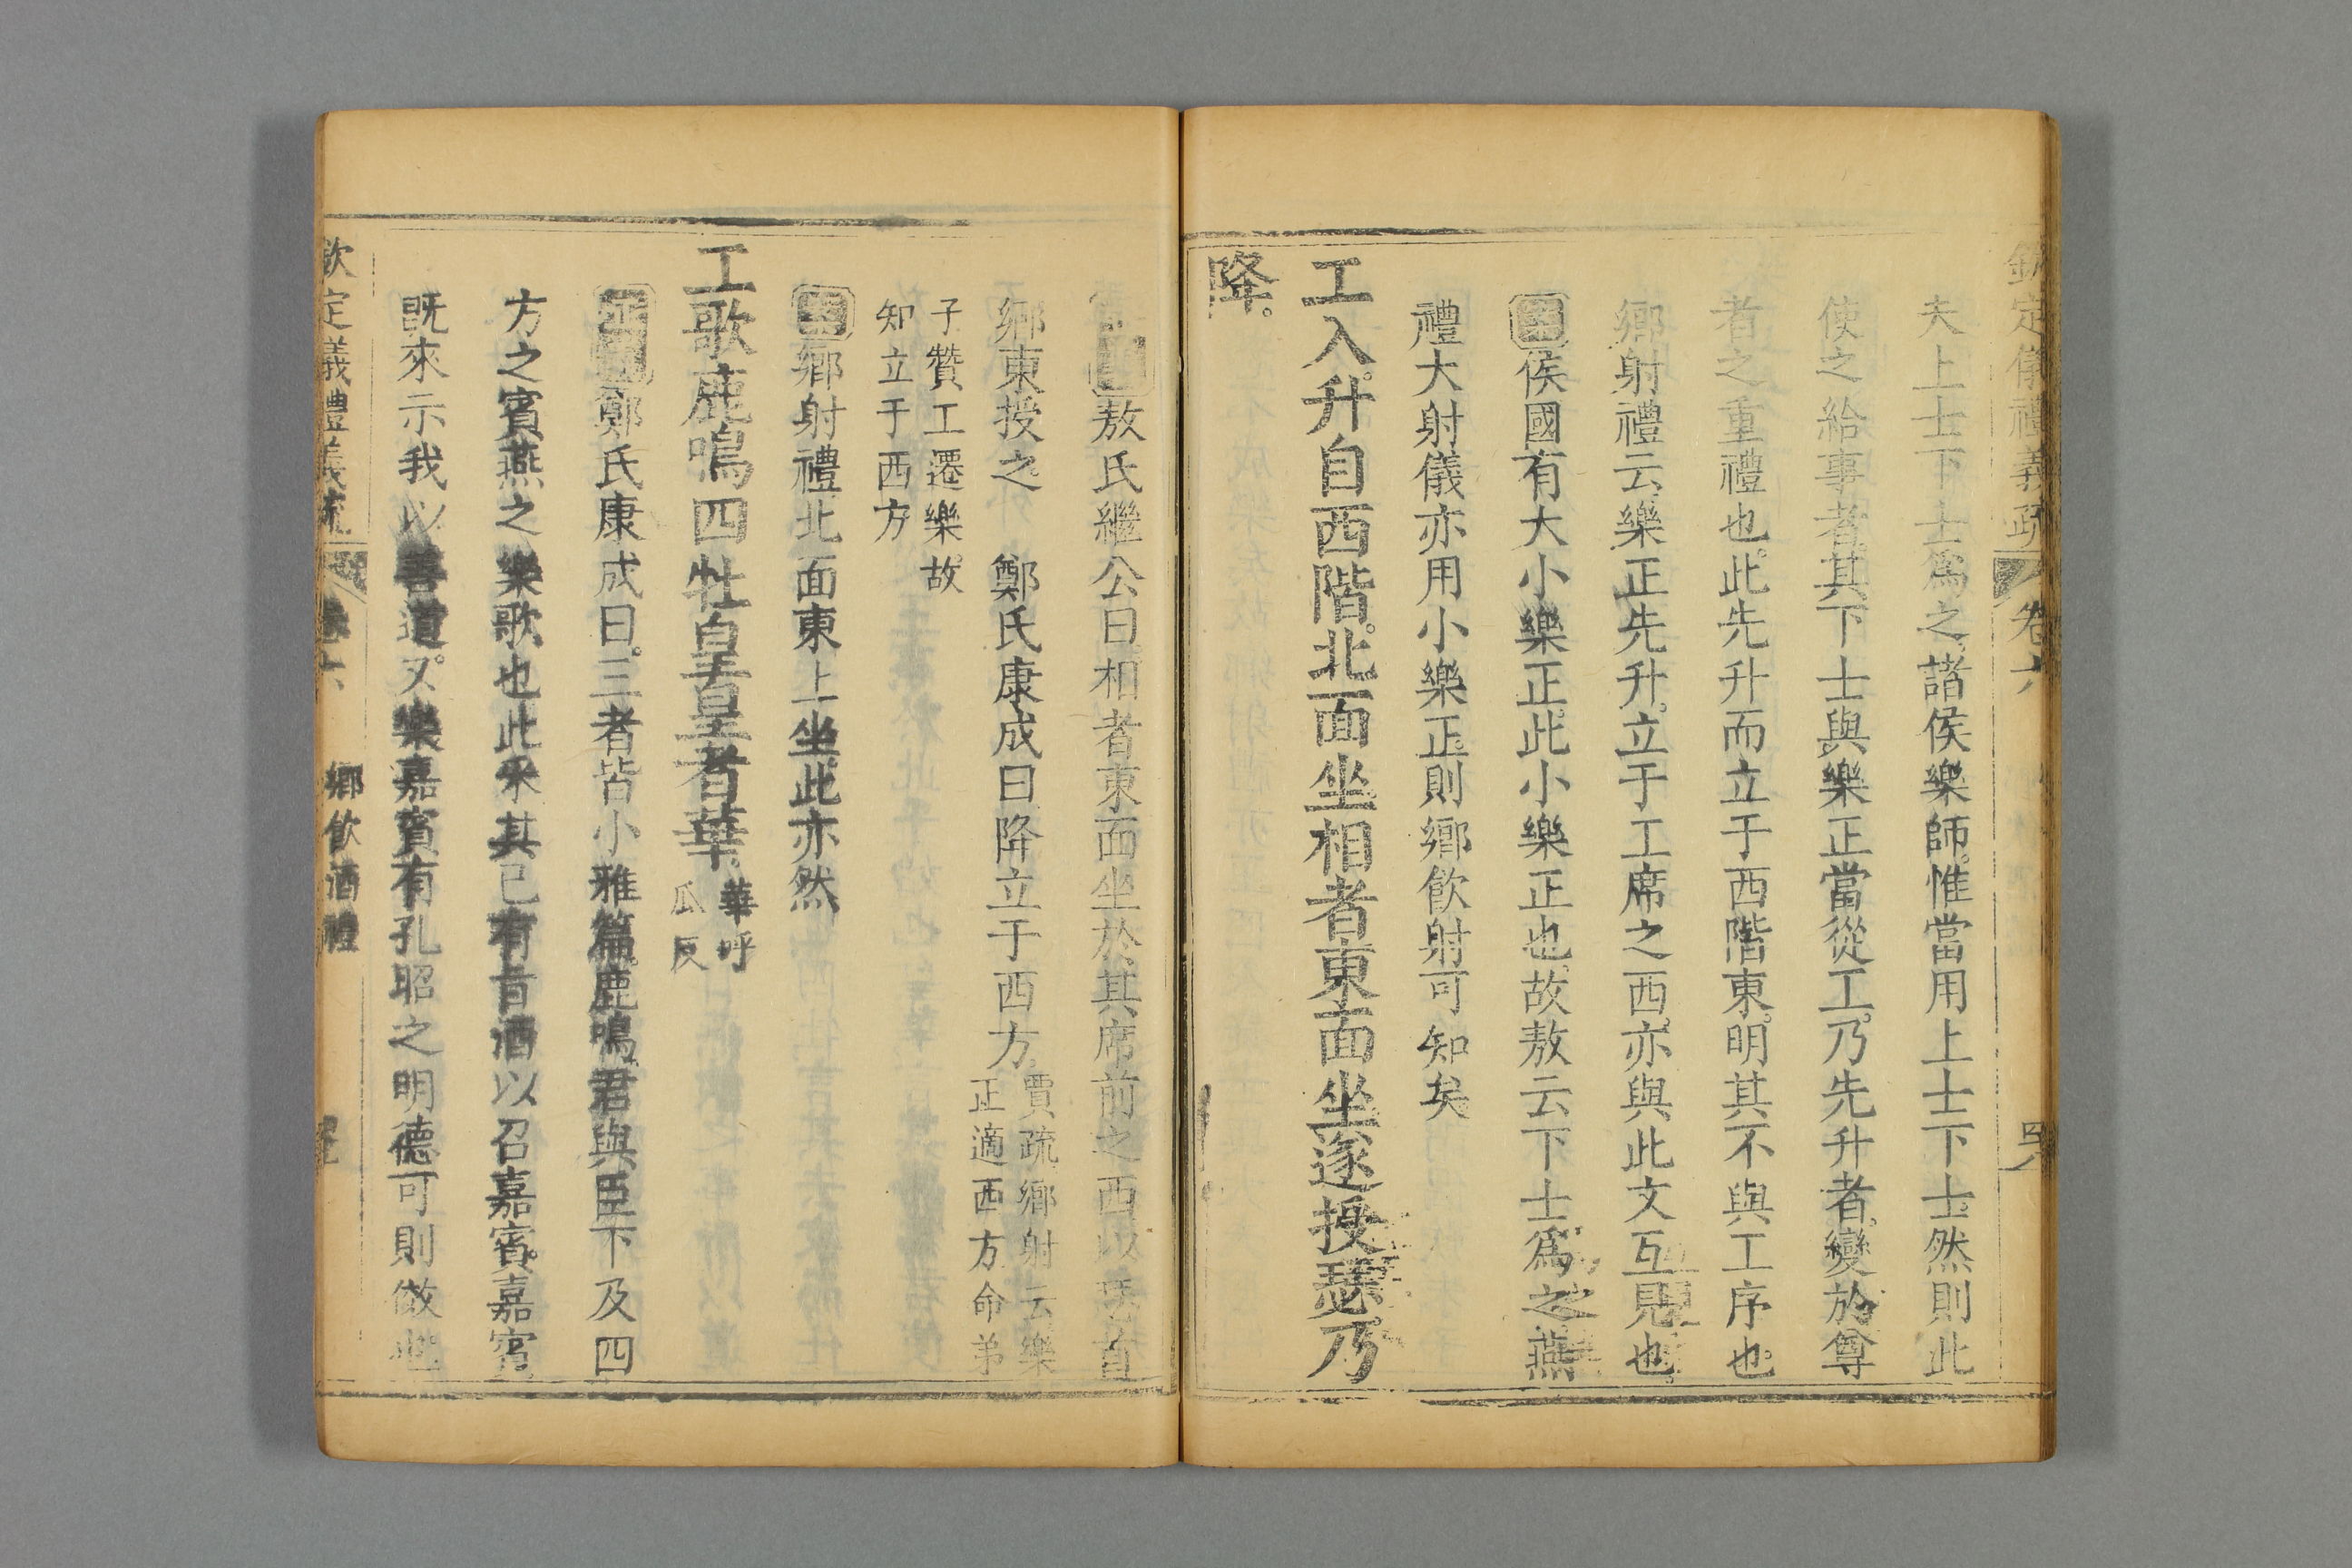 欽定儀禮義疏 卷六
夫上士下士爲之諸侯樂師惟當用上士下士然則此
使之給事者其下士與樂正當從工乃先升者變於尊
者之重禮也此先升而立于西階東明其不與工序也
鄉射禮云樂正先升立于工席之西亦與此文互見也
侯國有大小樂正此小樂正也故敖云下士爲之燕
禮大射儀亦用小樂正則鄉飲射可知矣
工入升自西階北面坐相者東面坐遂授瑟乃
降
敖氏繼公曰相者東面坐於其席前之西以瑟首
鄉東授之 鄭氏康成曰降立于西方
賈疏鄉射云樂
正適西方命弟
子贊工遷樂故
知立于西方
鄉射禮北面東上坐此亦然
工歌鹿鳴四牡皇皇者華
華呼
瓜反
鄭氏康成曰三者皆小雅篇鹿鳴君與臣下及四
方之賓燕之樂歌也此采其己有旨酒以召嘉賓嘉賓
既來示我以善道又樂嘉賓有孔昭之明德可則傚也
欽定儀禮義疏 卷六 鄉飲酒禮